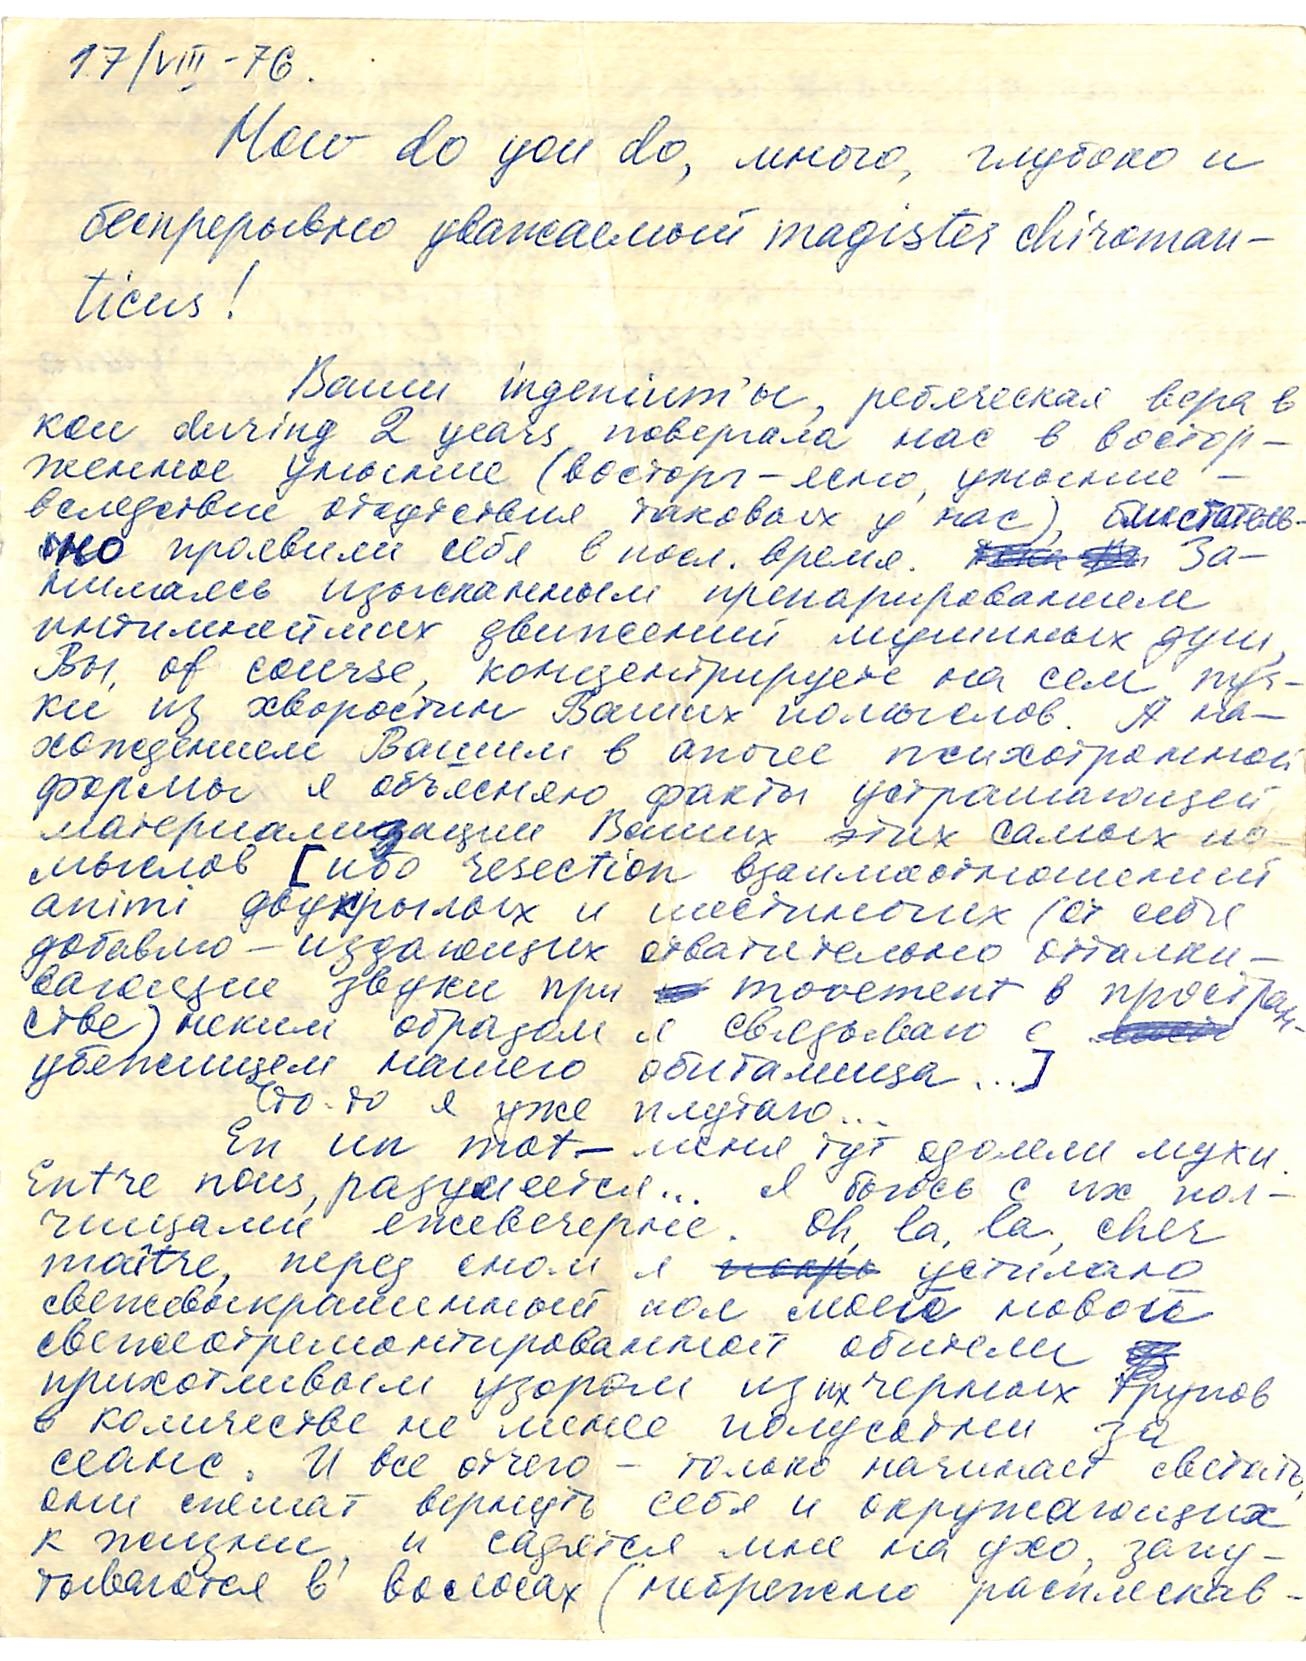 17/VIII -76.
How do you do, много, глубоко и
беспрерывно уважаемый magister chiroman-
ticus!
Ваши ingenium'ы, ребяческая вера в
кои during 2 years повергала нас в востор-
женное уныние (восторг - ясно, уныние -
вследствие отсутствия таковых у нас), блистатель-
но проявили себя в посл. время. За-
нимаясь изысканным препарированием
интимнейших движений мушиных душ,
Вы, of course, концентрируете на сем пуч-
ки из хворостин Ваших помыслов. А на-
хождением Вашим в апогее психотронной
формы я объясняю факты устрашающей
материализации Ваших этих самых по-
мыслов [ибо resection взаимоотношений
animi двукрылых и шестиногих (от себя
добавлю - издающих отвратительно отталки-
вающие звуки при movement в простран-
стве) неким образом я связываю с
убежищем нашего обиталища...]
Что-то я уже плутаю...
En un mot - меня тут одолели мухи.
Entre nous, разумеется... Я бьюсь с их пол-
чищами ежевечерне. Oh, la, la, cher
maître, перед сном я устилаю
свежевыкрашенный пол моей новой
свежеотремонтированной обители
прихотливым узором из их черных трупов
в количестве не менее полусотни за
сеанс. И все отчего - только начинает светать,
они спешат вернуть себя и окружающих
к жизни, и садятся мне на ухо, запу-
тываются в волосах (небрежно расплескав-